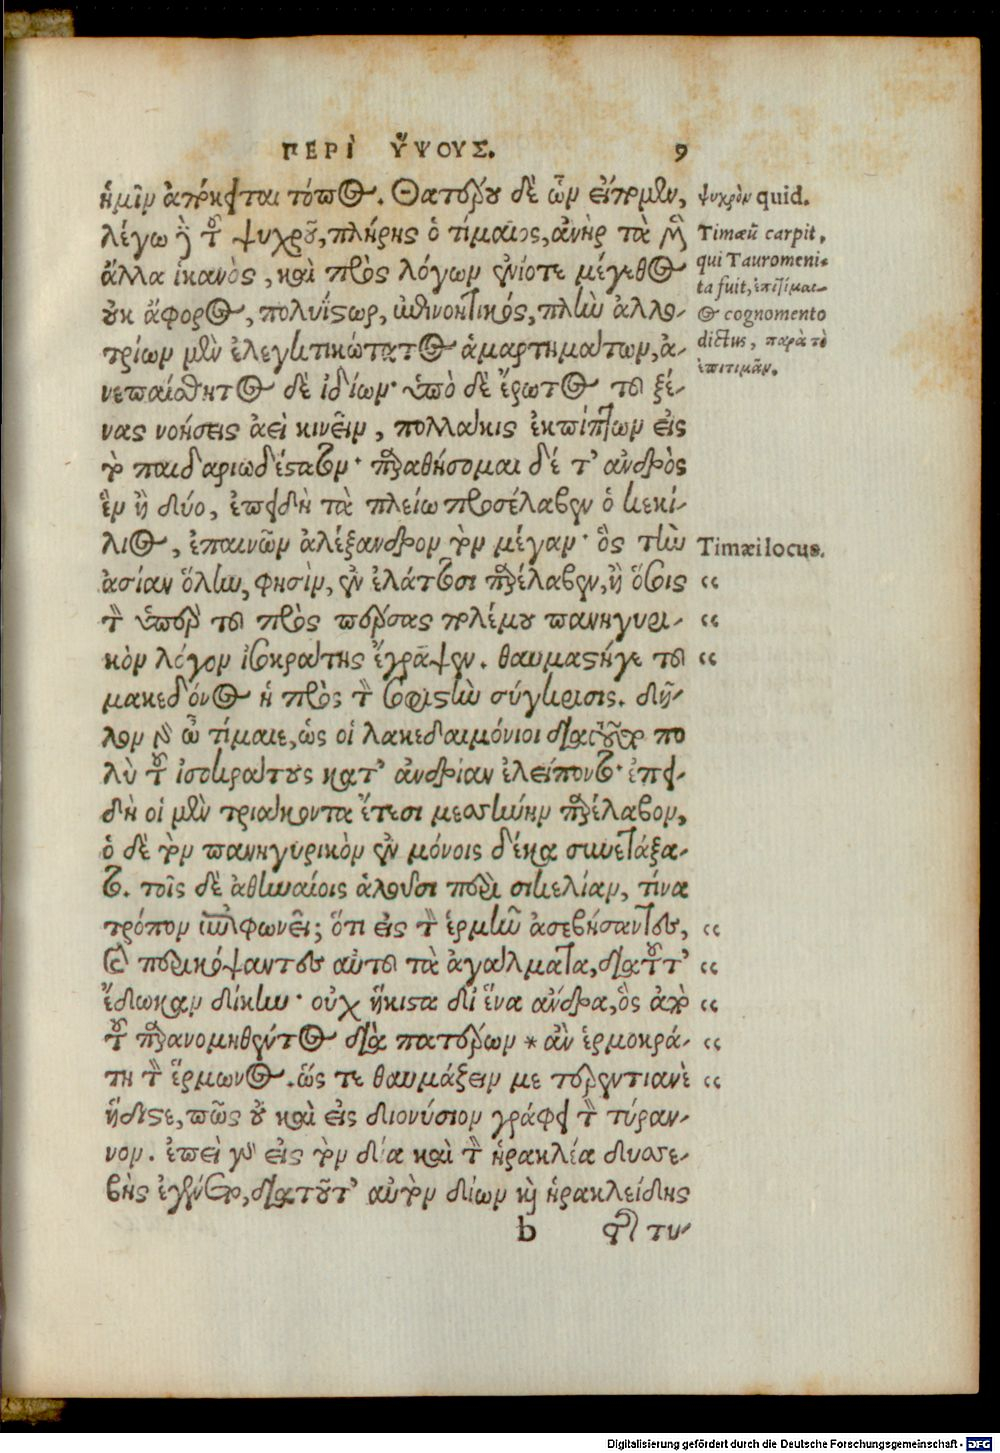 ΠΕΡῚ ὝΨΟΥΣ. 9
ἡμῖν ἀπόκειται τόπος. Θατέρου δὲ ὧν εἴπομεν, ψυχρὸν quid.
λέγω δὴ τοῦ ψυχροῦ, πλήρης ὁ τίμαιος, ἀνὴρ τὰ μὲν Timæũ carpit,
ἄλλα ἱκανὸς, καὶ πρὸς λόγων ἐνίοτε μέγεθος qui Tauromeni-
οὐκ ἄφορος, πολυΐστωρ, ἐπινοητικός, πλὴν ἀλλο- ta fuit, ἐπιτίμαι-
τρίων μὲν ἐλεγκτικώτατος ἁμαρτημάτων, ἀ- ος cognomento
νεπαίσθητος δὲ ἰδίων· ὑπὸ δὲ ἔρωτος τοῦ ξέ- dictus, παρὰ τὸ
νας νοήσεις ἀεὶ κινεῖν, πολλάκις ἐκπίπτων εἰς ἐπιτιμᾶν.
τὸ παιδαριωδέστατον· παραθήσομαι δὲ τ' ἀνδρὸς
ἓν ἢ δύο, ἐπειδὴ τὰ πλείω προσέλαβεν ὁ κεκί-
λιος, ἐπαινῶν ἀλέξανδρον τὸν μέγαν· ὃς τὴν Timæi locus.
ἀσίαν ὅλην, φησὶν, ἐν ἐλάττοσι παρέλαβεν, ἢ ὅσοις “
τὸν ὑπὲρ τοῦ πρὸς πέρσας πολέμου πανηγυρι- “
κὸν λόγον ἰσοκράτης ἔγραψεν. θαυμαστήγε τοῦ “
μακεδόνος ἡ πρὸς τὸν σοφιστὴν σύγκρισις. δῆ-
λον γὰρ ὦ τίμαιε, ὡς οἱ λακεδαιμόνιοι διὰ τοῦτο πο
λὺ τοῦ ἰσοκράτους κατ' ἀνδρίαν ἐλείποντο· ἐπει-
δὴ οἱ μὲν τριάκοντα ἔτεσι μεσσήνην παρέλαβον,
ὁ δὲ τὸν πανηγυρικὸν ἐν μόνοις δέκα συνετάξα-
το. τοῖς δὲ ἀθηναίοις ἁλοῦσι περὶ σικελίαν, τίνα
τρόπον ἐπιφωνεῖ; ὅτι εἰς τὸν ἑρμῆν ἀσεβήσαντες, “
καὶ περικόψαντες αὐτοῦ τὰ ἀγάλματα, διὰ τοῦτ' “
ἔδωκαν δίκην· οὐχ ἥκιστα δι ἕνα ἄνδρα, ὃς ἀπὸ “
τοῦ παρανομηθέντος διὰ πατέρων * ἂν ἑρμοκρά- “
τη τὸν ἕρμωνος. ὥς τε θαυμάζειν με τερεντιανὲ “
ἥδιστε, πῶς οὐ καὶ εἰς διονύσιον γράφει τὸν τύραν-
νον. ἐπεὶ γὰρ εἰς τὸν δία καὶ τὸν ἡρακλέα δυσσε-
βὴς ἐγένετο, διὰ τοῦτ' αὐτὸν δίων καὶ ἡρακλείδης
b τῆς τυ-
Digitalisierung gefördert durch die Deutsche Forschungsgemeinschaft - DFG